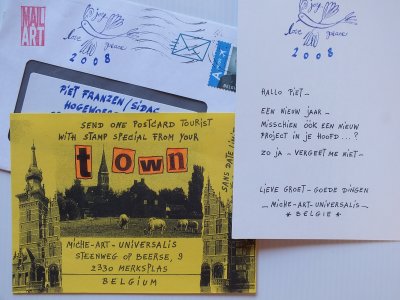 MAIL
ART
joy
love
peace
2008
A
PIET FRANZEN/SIDAC
SEND ONE POSTCARD TOURIST
WITH STAMP SPECIAL FROM YOUR
town
SANS DATE
MICHE-ART-UNIVERSALIS
STEENWEG OP BEERSE, 9
2330 MERKSPLAS
BELGIUM
joy
love
peace
2008
HALLO PIET-
EEN NIEUW JAAR-
MISSCHIEN OOK EEN NIEUW
PROJECT IN JE HOOFD...?
ZO JA - VERGEET ME NIET-
LIEVE GROET-GOEDE DINGEN
-MICHE-ART-UNIVERSALIS-
* BELGIE *